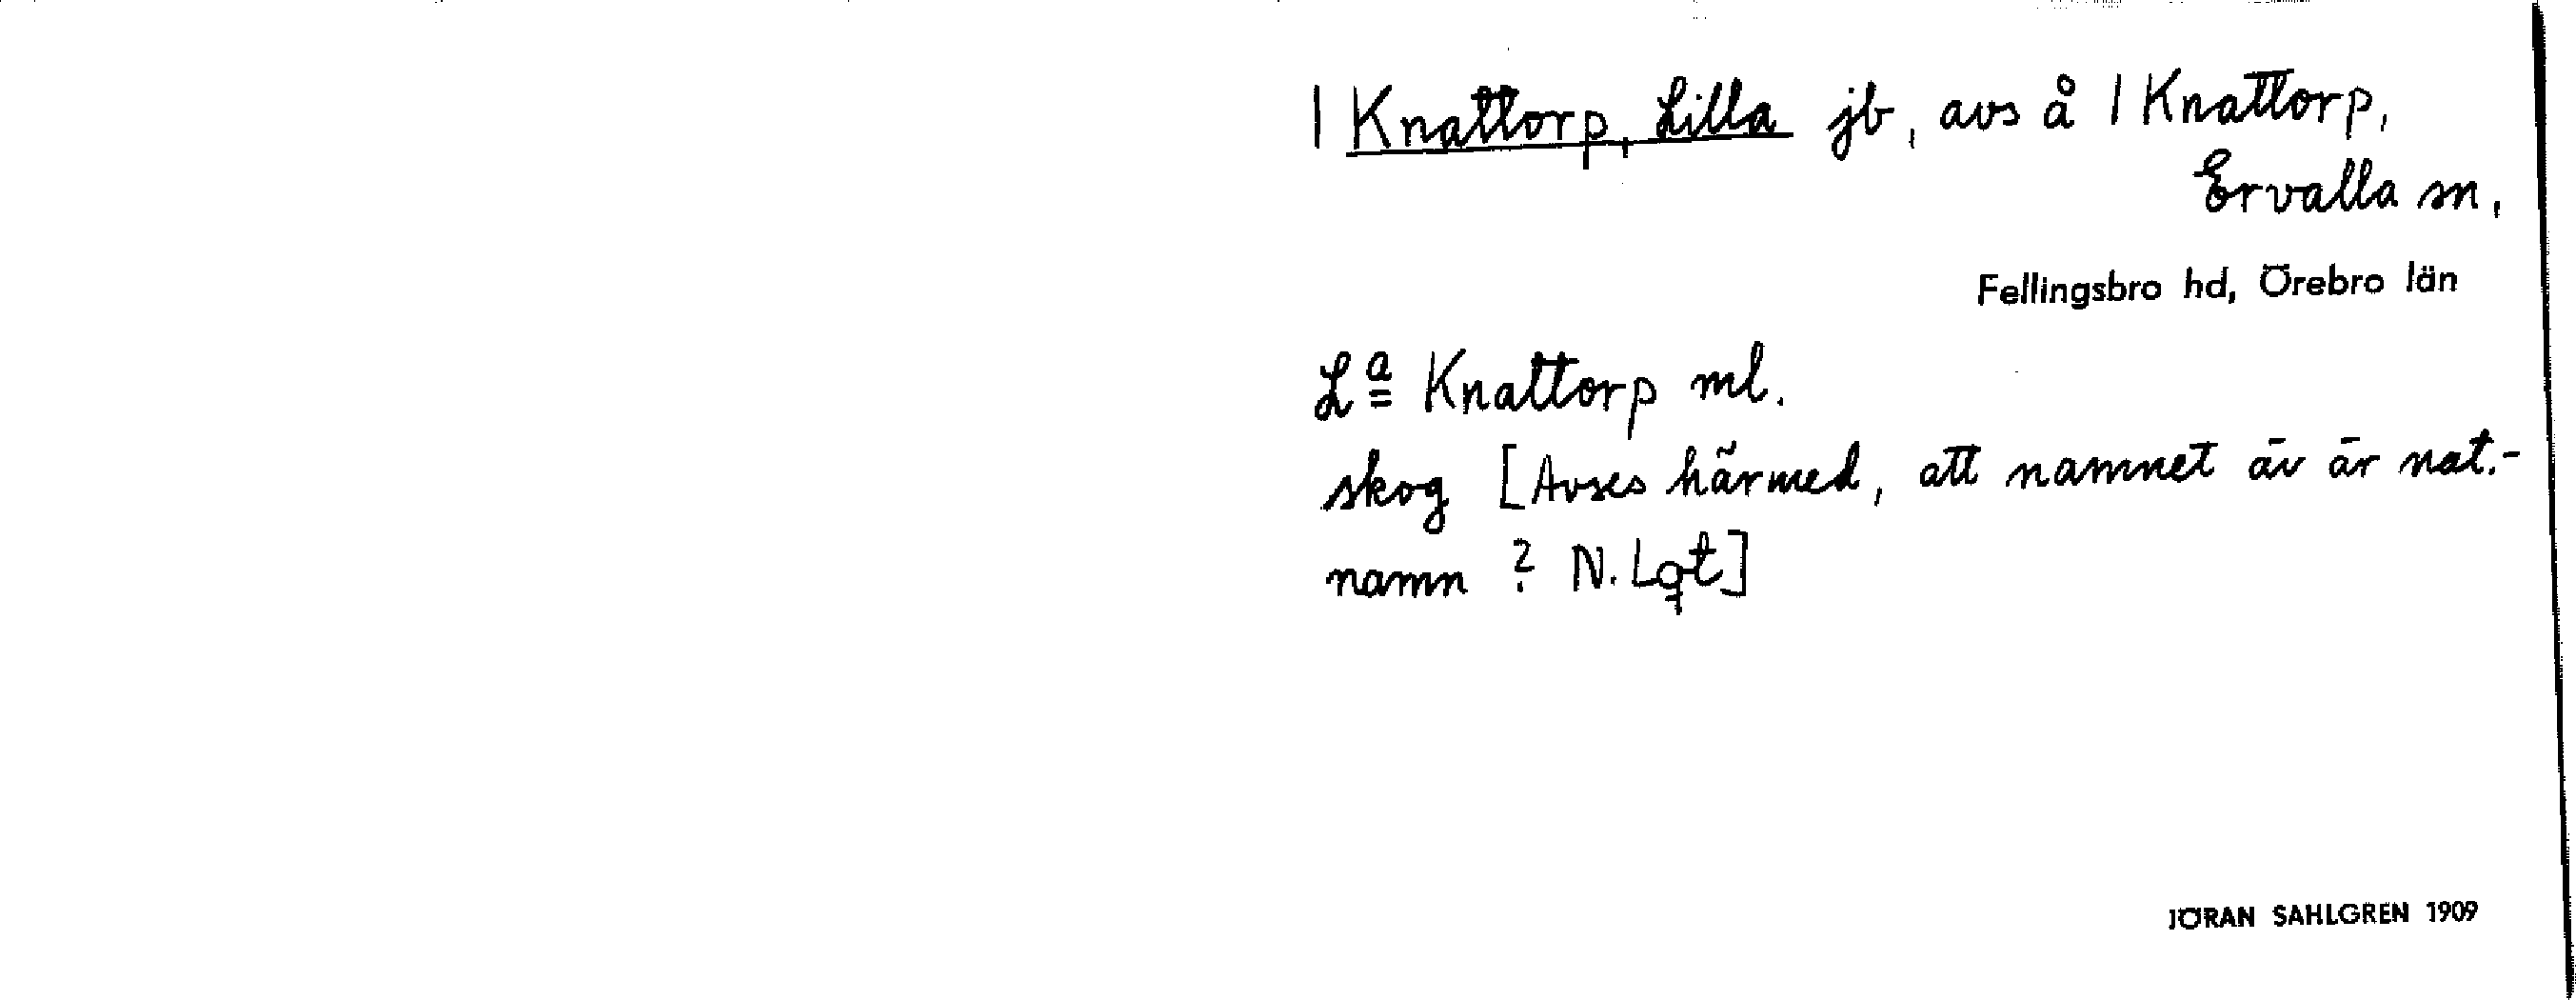 1 Knattorp, Lilla jb, avs å 1 Knattorp,
Ervalla sn,
Fellingsbro hd, Örebro län
Lª Knattorp ml.
skog [Avses härmed, att namnet äv är nat.-
namn? N. Lqt]
JÖRAN SAHLGREN 1909